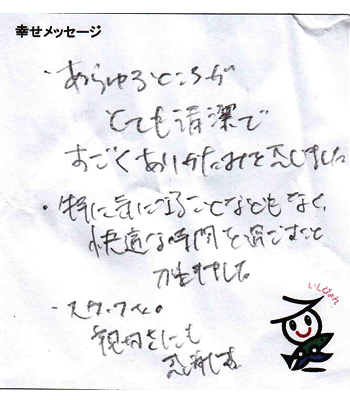 幸せメッセージ
・あらゆるところが
とても清潔で
すごくありがたみを感じました
・特に気になることなどもなく、
快適な時間を過ごすこと
ができました。
・スタッフさんの
親切さにも
感謝します。
いしぴょん